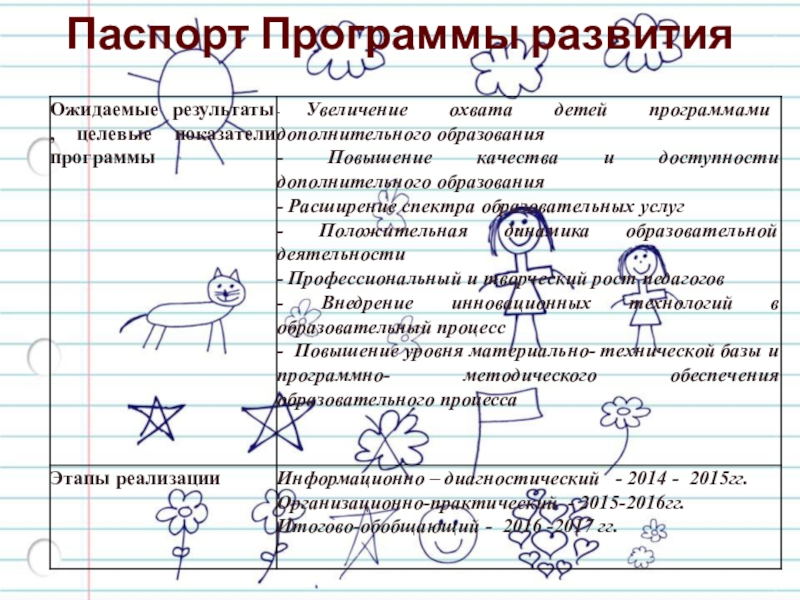 Паспорт Программы развития
Ожидаемые результаты
, целевые показатели
программы
- Увеличение охвата детей программами
дополнительного образования
- Повышение качества и доступности
дополнительного образования
- Расширение спектра образовательных услуг
- Положительная динамика образовательной
деятельности
- Профессиональный и творческий рост педагогов
- Внедрение инновационных технологий в
образовательный процесс
- Повышение уровня материально- технической базы и
программно- методического обеспечения
образовательного процесса
Этапы реализации
Информационно – диагностический - 2014 - 2015гг.
Организационно-практический - 2015-2016гг.
Итогово-обобщающий - 2016 -2017 гг.